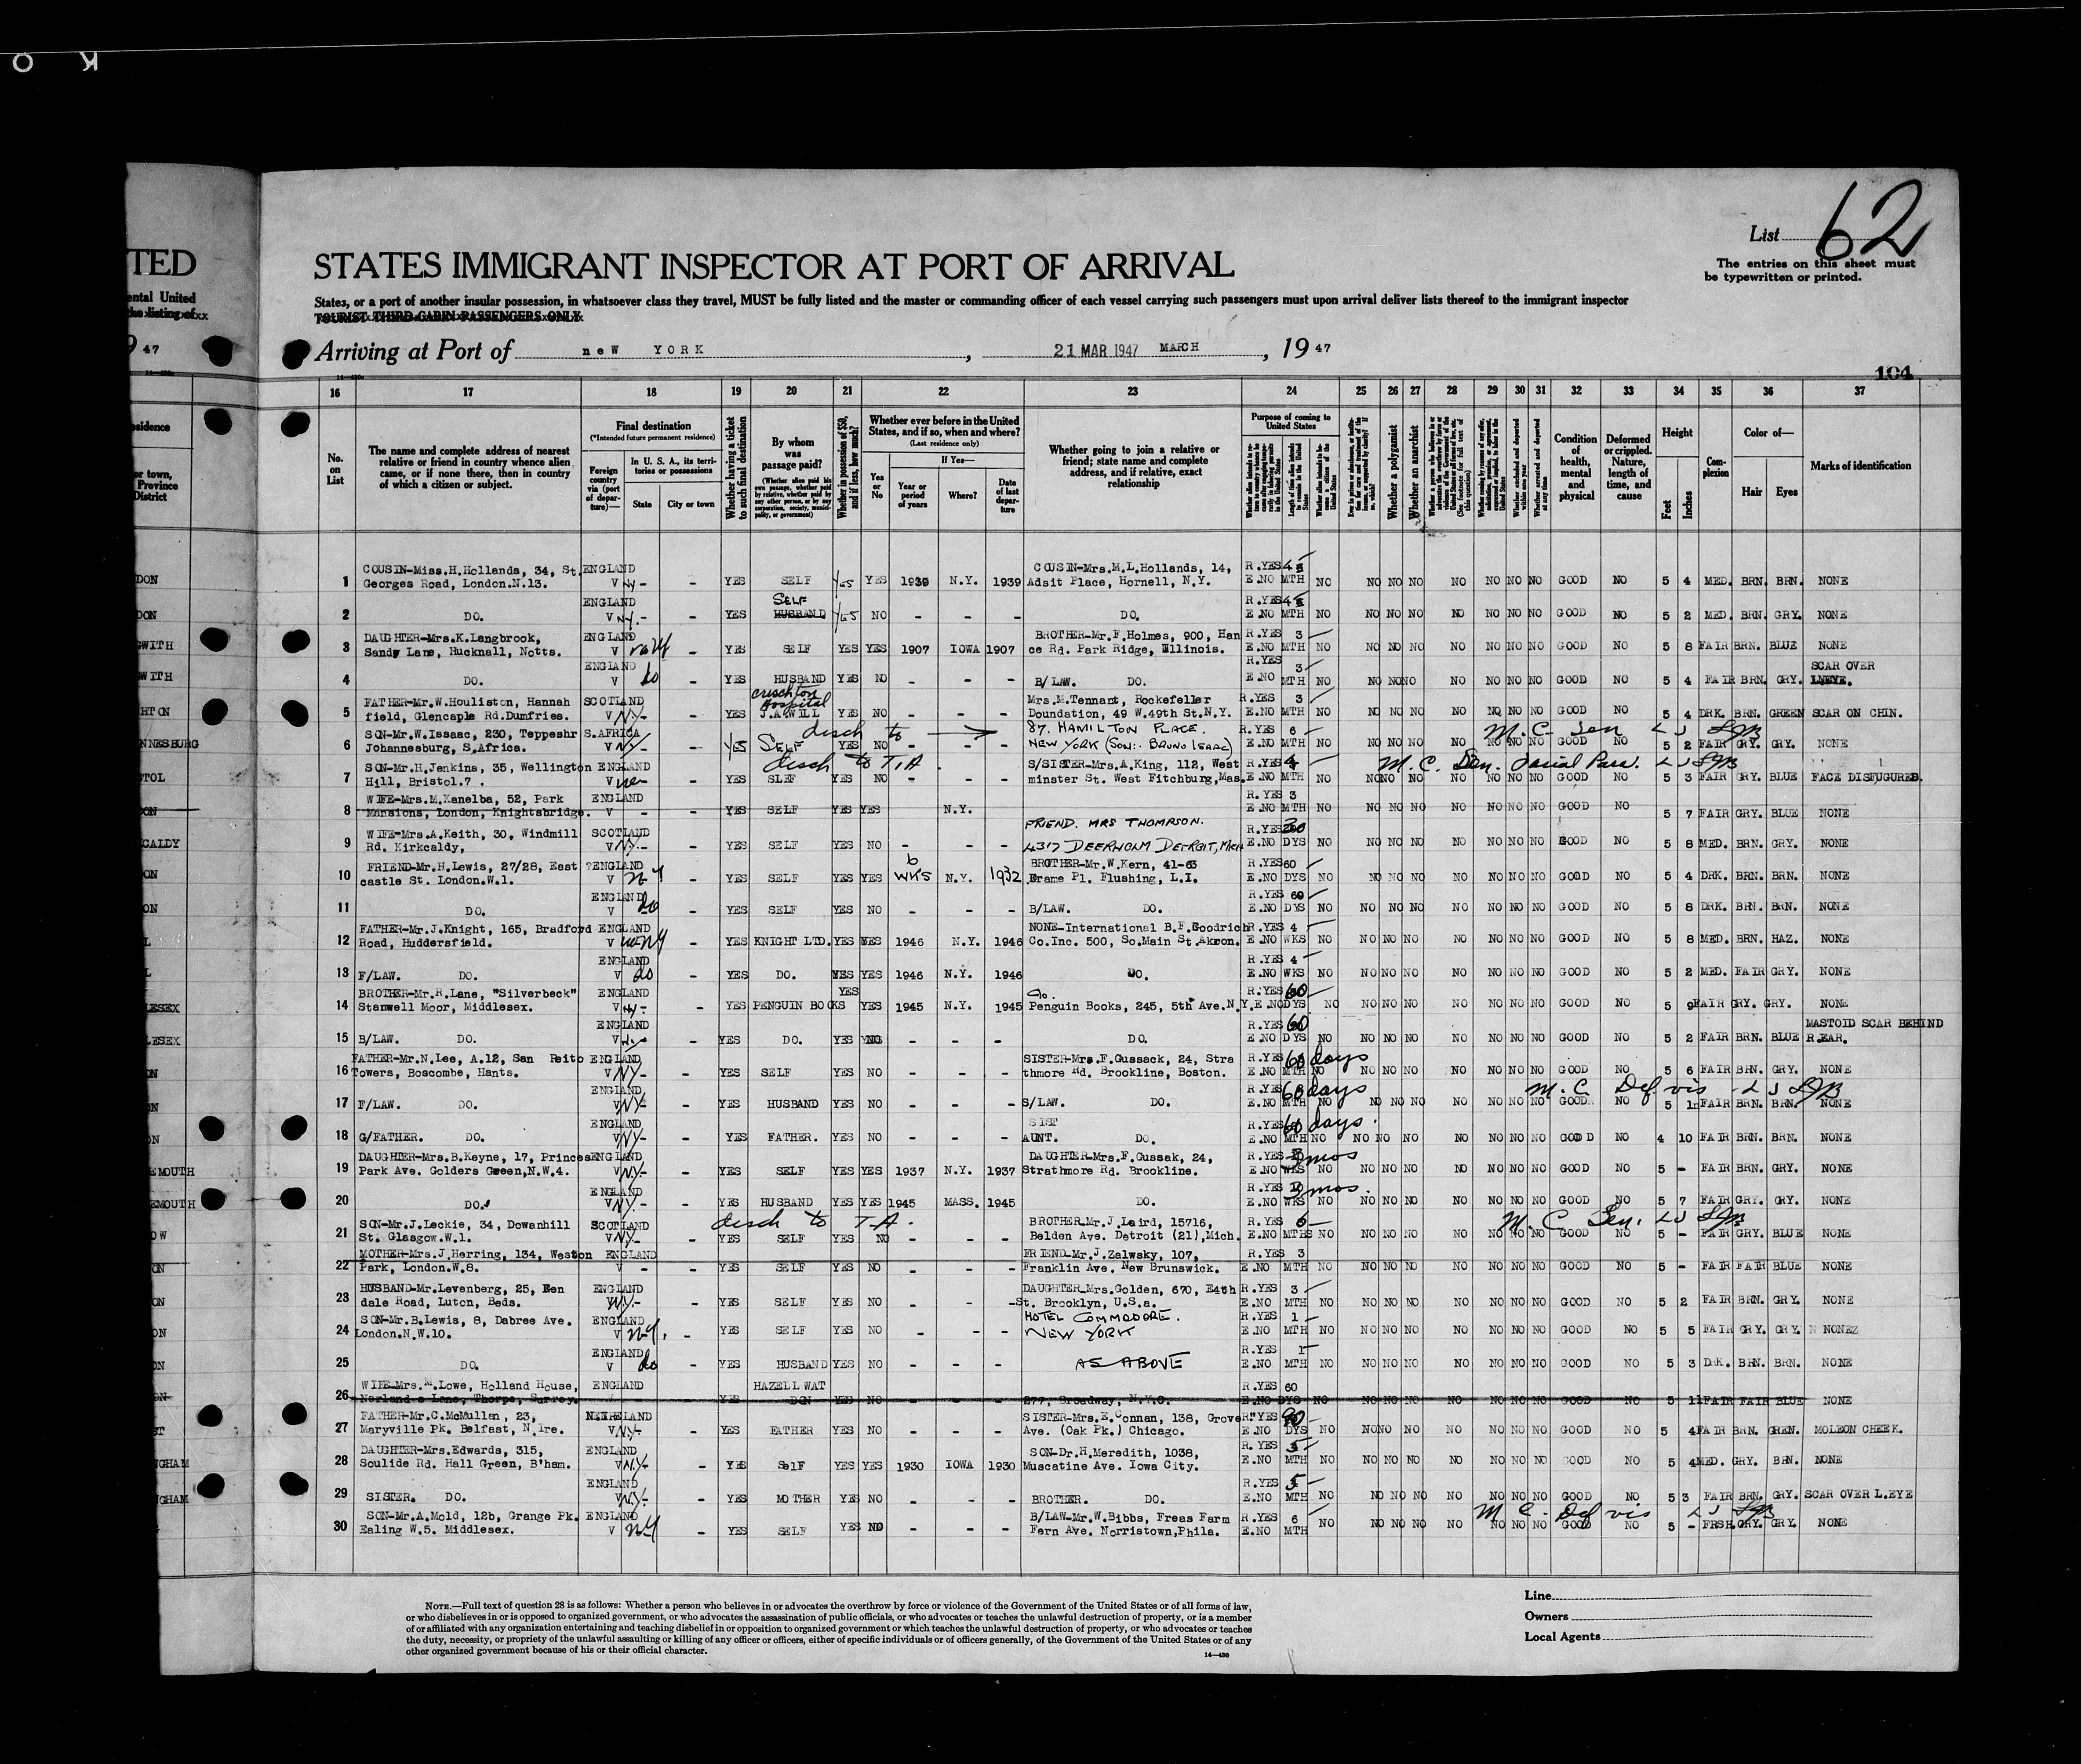 O K
TED
ental United
the listing of xx
9 47
sidence
or town,
Province
District
List 62
The entries on this sheet must
be typewritten or printed.
STATES IMMIGRANT INSPECTOR AT PORT OF ARRIVAL
States, or a port of another insular possession, in whatsoever class they travel, MUST be fully listed and the master or commanding officer of each vessel carrying such passengers must upon arrival deliver lists thereof to the immigrant inspector
TOURIST THIRD CABIN PASSENGERS ONLY
Arriving at Port of neW YORK , 21 MAR 1947 MARCH , 19 47
104
16 17 18 19 20 21 22 23 24 25 26 27 28 29 30 31 32 33 34 35 36 37
No. on List
The name and complete address of nearest relative or friend in country whence alien came, or if none there, then in country of which a citizen or subject.
Final destination
(*Intended future permanent residence)
Foreign country via (port of departure)—
In U. S. A., its territories or possessions
State
City or town
Whether having a ticket to such final destination
By whom was passage paid?
(Whether alien paid his own passage, whether paid by relative, whether paid by any other person, or by any corporation, society, municipality, or government)
Whether in possession of $50, and if less, how much?
Whether ever before in the United States, and if so, when and where?
(Last residence only)
Yes or No
If Yes—
Year or period of years
Where?
Date of last departure
Whether going to join a relative or friend; state name and complete address, and if relative, exact relationship
Purpose of coming to United States
Whether a polygamist
Whether an anarchist
Condition of health, mental and physical
Deformed or crippled. Nature, length of time, and cause
Height
Feet
Inches
Complexion
Color of—
Hair
Eyes
Marks of identification
DON COUSIN-Miss.H.Hollands, 34, St. ENGLAND COUSIN-Mrs.M.L.Hollands, 14, R.YES 4
1 Georges Road, London.N.13. V NY - - YES SELF Yes YES 1939 N.Y. 1939 Adsit Place, Hornell, N.Y. E.NO MTH NO NO NO NO NO NO NO NO GOOD NO 5 4 MED. BRN. BRN. NONE
DON ENGLAND SELF R.YES 4
2 DO. V NY. - - YES HUSBAND Yes NO - - - DO. E.NO MTH NO NO NO NO NO NO NO NO GOOD NO 5 2 MED. BRN. GRY. NONE
WITH DAUGHTER-Mrs.K.Langbrook, ENGLAND BROTHER-Mr.F.Holmes, 900, Han R.YES 3
3 Sandy Lane, Hucknall, Notts. V - YES SELF YES YES 1907 IOWA 1907 ce Rd. Park Ridge, Illinois. E.NO MTH NO NO NO NO NO NO NO NO GOOD NO 5 8 FAIR BRN. BLUE NONE
WITH ENGLAND R.YES 3 SCAR OVER
4 DO. V do - YES HUSBAND YES NO - - - B/LAW. DO. E.NO MTH NO NO NO NO NO NO NO NO GOOD NO 5 4 FAIR BRN. GRY. LNEYE.
HTON FATHER-Mr.W.Houliston, Hannah SCOTLAND crischton Hospital Mrs.M.Tennant, Rockefeller R.YES 3
5 field, Glencaple Rd.Dumfries. V NY. - YES J.A.WILL YES NO - - - Doundation, 49 W.49th St.N.Y. E.NO MTH NO NO NO NO NO NO NO NO GOOD NO 5 4 DRK. BRN. GREEN SCAR ON CHIN.
NNESBURG SON-Mr.W.Issaac, 230, Teppeshr S.AFRICA disch to 87. HAMILTON PLACE. R.YES 6 M.C. Sen
6 Johannesburg, S.Africa. V NY - Yes SELF YES NO - - - NEW YORK (SON:- BRUNO ISAAC) E.NO MTH NO NO NO NO NO NO NO NO GOOD NO 5 2 FAIR GRY. GRY. NONE
TOL SON-Mr.H.Jenkins, 35, Wellington ENGLAND disch to T.A. S/SISTER-Mrs.A.King, 112, West R.YES 4 M.C. Sen. facial Para.
7 Hill, Bristol.7 . V - YES SLEF YES NO - - - minster St. West Fitchburg,Mas. E.NO MTH NO NO NO NO NO NO NO NO GOOD NO 5 3 FAIR GRY. BLUE FACE DISFUGURED.
WIFE-Mrs.M.Kanelba, 52, Park ENGLAND R.YES 3
8 Mansions, London, Knightsbridge. V - YES SELF YES YES N.Y. E.NO MTH NO NO NO NO NO NO NO NO GOOD NO 5 7 FAIR GRY. BLUE NONE
CALDY WIFE-Mrs.A.Keith, 30, Windmill SCOTLAND FRIEND. MRS THOMPSON. R.YES
9 Rd. Kirkcaldy, V NY. - YES SELF YES NO - - - 4317 DEERHOLM DETROIT, MICH E.NO DYS NO NO NO NO NO NO NO NO GOOD NO 5 8 MED. BRN. GRY. NONE
ON FRIEND-Mr.H.Lewis, 27/28, East ?ENGLAND 6 BROTHER-Mr.W.Kern, 41-63 R.YES 60
10 castle St. London.W.1. V NY - YES SELF YES YES WKS N.Y. 1932 Frame Pl. Flushing, L.I. E.NO DYS NO NO NO NO NO NO NO NO GOOD NO 5 4 DRK. BRN. BRN. NONE
ON ENGLAND R.YES 60
11 DO. V do - YES SELF YES NO - - - B/LAW. DO. E.NO DYS NO NO NO NO NO NO NO NO GOOD NO 5 8 DRK. BRN. BRN. NONE
L FATHER-Mr.J.Knight, 165, Bradford ENGLAND NONE-International B.F.Goodrich R.YES 4
12 Road, Huddersfield. V - YES KNIGHT LTD. YES YES 1946 N.Y. 1946 Co.Inc. 500, So.Main St.Akron. E.NO WKS NO NO NO NO NO NO NO NO GOOD NO 5 8 MED. BRN. HAZ. NONE
L ENGLAND R.YES 4
13 F/LAW. DO. V do - YES DO. YES YES 1946 N.Y. 1946 DO. E.NO WKS NO NO NO NO NO NO NO NO GOOD NO 5 2 MED. FAIR GRY. NONE
LESEX BROTHER-Mr.R.Lane, "Silverbeck" ENGLAND YES c/o. R.YES 60
14 Stanwell Moor, Middlesex. V NY. - YES PENGUIN BOOKS YES 1945 N.Y. 1945 Penguin Books, 245, 5th Ave.N.Y. E.NO DYS NO NO NO NO NO NO NO NO GOOD NO 5 9 FAIR GRY. GRY. NONE
LESEX ENGLAND R.YES 60 MASTOID SCAR BEHIND
15 B/LAW. DO. V - YES DO. YES NO - - - DO. E.NO DYS NO NO NO NO NO NO NO NO GOOD NO 5 2 FAIR BRN. BLUE R.EAR.
ON FATHER-Mr.N.Lee, A.12, San Reito ENGLAND SISTER-Mrs.F.Gussack, 24, Stra R.YES 60 days
16 Towers, Boscombe, Hants. V NY- - YES SELF YES NO - - - thmore Rd. Brookline, Boston. E.NO MTH NO NO NO NO NO NO NO NO GOOD NO 5 6 FAIR BRN. GRY. NONE
N ENGLAND R.YES 60 days M.C. Def vis
17 F/LAW. DO. V NY- - YES HUSBAND YES NO - - - S/LAW. DO. E.NO MTH NO NO NO NO NO NO NO NO GOOD NO 5 FAIR BRN. BRN. NONE
ON ENGLAND SIST R.YES 60 days.
18 G/FATHER. DO. V NY- - YES FATHER. YES NO - - - AUNT. DO. E.NO MTH NO NO NO NO NO NO NO NO GOOD NO 4 10 FAIR BRN. BRN. NONE
EMOUTH DAUGHTER-Mrs.B.Keyne, 17, Princes ENGLAND DAUGHTER-Mrs.F.Gussak, 24, R.YES 3 mos
19 Park Ave. Golders Green,N.W.4. V NY. - YES SELF YES YES 1937 N.Y. 1937 Strathmore Rd. Brookline. E.NO WKS NO NO NO NO NO NO NO NO GOOD NO 5 - FAIR BRN. GRY. NONE
EMOUTH ENGLAND R.YES 3 mos.
20 DO. V NY- - YES HUSBAND YES YES 1945 MASS. 1945 DO. E.NO WKS NO NO NO NO NO NO NO NO GOOD NO 5 7 FAIR GRY. GRY. NONE
OW SON-Mr.J.Leckie, 34, Dowanhill SCOTLAND disch to T.A. BROTHER-Mr.J.Laird, 15716, R.YES 6 M.C. Sen.
21 St. Glasgow.W.1. V NY- - YES SELF YES NO - - - Belden Ave. Detroit (21),Mich. E.NO MTHS NO NO NO NO NO NO NO NO GOOD NO 5 - FAIR GRY. BLUE NONE
ON MOTHER-Mrs.J.Herring, 134, Weston ENGLAND FRIEND-Mr.J.Zalwsky, 107, R.YES 3
22 Park, London.W.8. V - - YES SELF YES NO - - - Franklin Ave. New Brunswick. E.NO MTH NO NO NO NO NO NO NO NO GOOD NO 5 - FAIR FAIR BLUE NONE
ON HUSBAND-Mr.Levenberg, 25, Ken ENGLAND DAUGHTER-Mrs.Golden, 670, E4th R.YES 3
23 dale Road, Luton, Beds. V NY.- - YES SELF YES NO - - - St. Brooklyn, U.S.a. E.NO MTH NO NO NO NO NO NO NO NO GOOD NO 5 2 FAIR BRN. GRY. NONE
ON SON-Mr.B.Lewis, 8, Dabree Ave. ENGLAND HOTEL COMMODORE. R.YES 1
24 London.N.W.10. V NY. - YES SELF YES NO - - - NEW YORK E.NO MTH NO NO NO NO NO NO NO NO GOOD NO 5 5 FAIR GRY. GRY. N NONEZ
ON ENGLAND R.YES 1
25 DO. V do - YES HUSBAND YES NO - - - AS ABOVE E.NO MTH NO NO NO NO NO NO NO NO GOOD NO 5 3 DRK. BRN. BRN. NONE
ON WIFE-Mrs.M.Lowe, Holland House, ENGLAND HAZELL WAT R.YES 60
26 Norland s Lane, Thorpe, Surrey. YES DON YES NO - - - 277, Broadway, N.Y.C. E.NO DYS NO NO NO NO NO NO NO NO GOOD NO 5 11 FAIR FAIR BLUE NONE
ST FATHER-Mr.C.McMullan, 23, N.IRELAND SISTER-Mrs.E.Connan, 138, Grove R.YES 90
27 Maryville Pk. Belfast, N.Ire. V NY- - YES FATHER YES NO - - - Ave. (Oak Pk.) Chicago. E.NO DYS NO NO NO NO NO NO NO NO GOOD NO 5 4 FAIR BRN. GREN. MOLEON CHEEK.
NGHAM DAUGHTER-Mrs.Edwards, 315, ENGLAND SON-Dr.H.Meredith, 1038, R.YES 5
28 Scoulide Rd. Hall Green, B'ham. V N.Y. - YES SelF YES YES 1930 IOWA 1930 Muscatine Ave. Iowa City. E.NO MTH NO NO NO NO NO NO NO NO GOOD NO 5 4 MED. GRY. BRN. NONE
NGHAM ENGLAND R.YES 5
29 SISTER. DO. V N.Y.- - YES MOTHER YES NO - - - BROTHER. DO. E.NO MTH NO NO NO NO NO NO NO NO GOOD NO 5 3 FAIR BRN. GRY. SCAR OVER L.EYE
SON-Mr.A.Mold, 12b, Grange Pk. ENGLAND B/LAW-Mr.W.Bibbs, Freas Farm R.YES 6 M C. Def vis
30 Ealing W.5. Middlesex. V NY - YES SELF YES NO - - - Fern Ave. Norristown,Phila. E.NO MTH NO NO NO NO NO NO NO NO GOOD NO 5 - FRSH. GRY. GRY. NONE
NOTE.—Full text of question 28 is as follows: Whether a person who believes in or advocates the overthrow by force or violence of the Government of the United States or of all forms of law,
or who disbelieves in or is opposed to organized government, or who advocates the assassination of public officials, or who advocates or teaches the unlawful destruction of property, or is a member
of or affiliated with any organization entertaining and teaching disbelief in or opposition to organized government or which teaches the unlawful destruction of property, or who advocates or teaches
the duty, necessity, or propriety of the unlawful assaulting or killing of any officer or officers, either of specific individuals or of officers generally, of the Government of the United States or of any
other organized government because of his or their official character.
14—430
Line
Owners
Local Agents